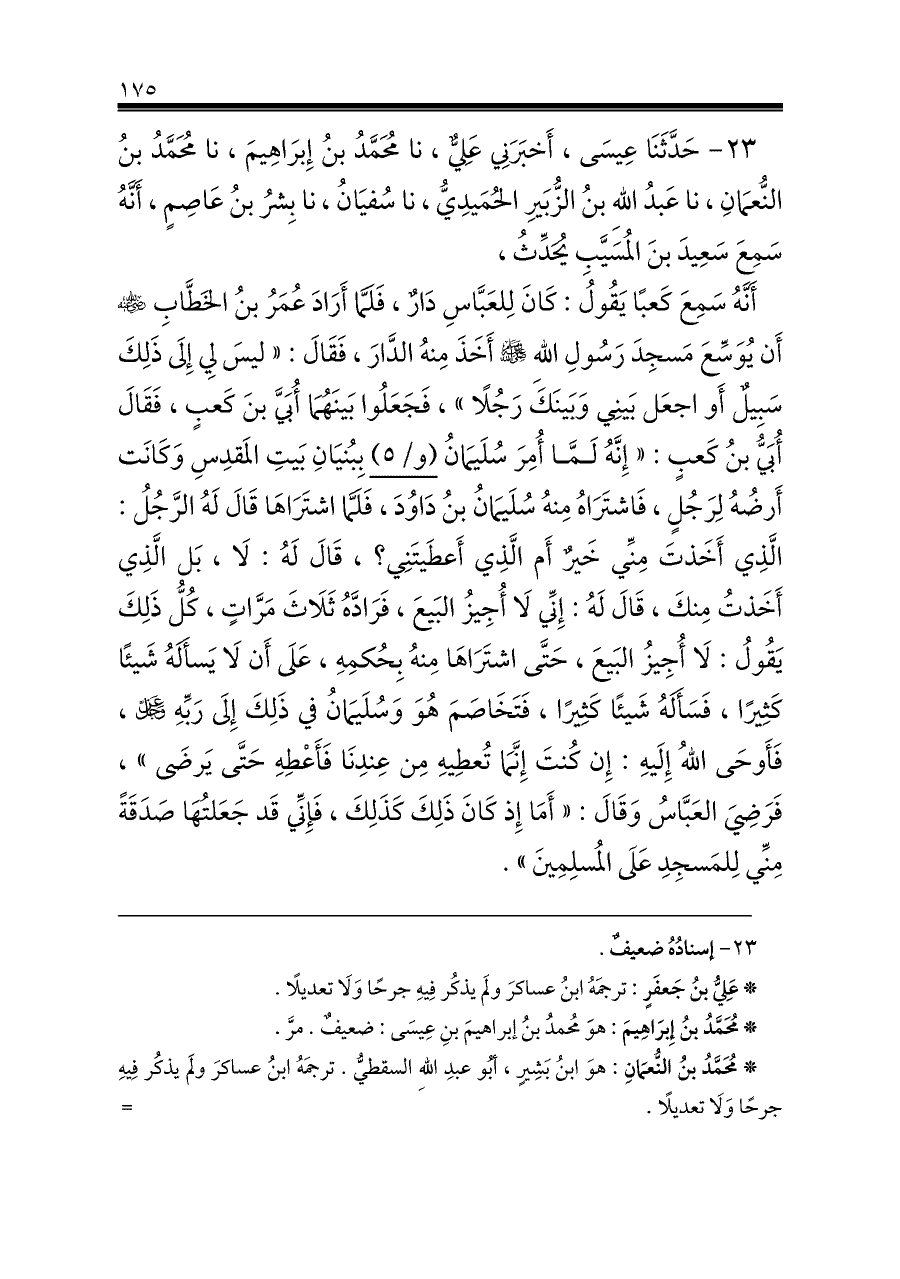 ١٧٥
٢٣- حَدَّثَنَا عِيسَى ، أَخبَرَنِي عَلِيٌّ ، نا مُحَمَّدُ بنُ إِبرَاهِيمَ ، نا مُحَمَّدُ بنُ
النُّعمَانِ ، نا عَبدُ الله بنُ الزُّبَيرِ الحُمَيدِيُّ ، نا سُفيَانُ ، نا بِشرُ بنُ عَاصِمٍ ، أَنَّهُ
سَمِعَ سَعِيدَ بنَ المُسَيَّبِ يُحَدِّثُ ،
أَنَّهُ سَمِعَ كَعبًا يَقُولُ : كَانَ لِلعَبَّاسِ دَارٌ ، فَلَمَّا أَرَادَ عُمَرُ بنُ الخَطَّابِ ﵁
أَن يُوَسِّعَ مَسجِدَ رَسُولِ الله ﷺ أَخَذَ مِنهُ الدَّارَ ، فَقَالَ : « ليسَ لِي إِلَى ذَلِكَ
سَبِيلٌ أَو اجعَل بَينِي وَبَينَكَ رَجُلًا » ، فَجَعَلُوا بَينَهُمَا أُبَيَّ بنَ كَعبٍ ، فَقَالَ
أُبَيُّ بنُ كَعبٍ : « إِنَّهُ لَـمَّـا أُمِرَ سُلَيمَانُ (و/ ٥) بِبُنيَانِ بَيتِ المَقدِسِ وَكَانَت
أَرضُهُ لِرَجُلٍ ، فَاشتَرَاهُ مِنهُ سُلَيمَانُ بنُ دَاوُدَ ، فَلَمَّا اشتَرَاهَا قَالَ لَهُ الرَّجُلُ :
الَّذِي أَخَذتَ مِنِّي خَيرٌ أَم الَّذِي أَعطَيتَنِي؟ ، قَالَ لَهُ : لَا ، بَل الَّذِي
أَخَذتُ مِنكَ ، قَالَ لَهُ : إِنِّي لَا أُجِيزُ البَيعَ ، فَرَادَّهُ ثَلَاثَ مَرَّاتٍ ، كُلُّ ذَلِكَ
يَقُولُ : لَا أُجِيزُ البَيعَ ، حَتَّى اشتَرَاهَا مِنهُ بِحُكمِهِ ، عَلَى أَن لَا يَسأَلَهُ شَيئًا
كَثِيرًا ، فَسَأَلَهُ شَيئًا كَثِيرًا ، فَتَخَاصَمَ هُوَ وَسُلَيمَانُ في ذَلِكَ إِلَى رَبِّهِ ﷿ ،
فَأَوحَى اللهُ إِلَيهِ : إِن كُنتَ إِنَّمَا تُعطِيهِ مِن عِندِنَا فَأَعْطِهِ حَتَّى يَرضَى » ،
فَرَضِيَ العَبَّاسُ وَقَالَ : « أَمَا إِذ كَانَ ذَلِكَ كَذَلِكَ ، فَإِنِّي قَد جَعَلتُهَا صَدَقَةً
مِنِّي لِلمَسجِدِ عَلَى المُسلِمِينَ » .
٢٣- إسنادُهُ ضعيفٌ .
* عَلِيُّ بنُ جَعفَرٍ : ترجمَهُ ابنُ عساكرَ ولَم يذكُر فِيهِ جرحًا وَلَا تعديلًا .
* مُحَمَّدُ بنُ إِبرَاهِيمَ : هوَ مُحمدُ بنُ إبراهيمَ بنِ عِيسَى : ضعيفٌ . مرَّ .
* مُحَمَّدُ بنُ النُّعمَانِ : هوَ ابنُ بَشِيرٍ ، أبُو عبدِ اللهِ السقطيُّ . ترجمَهُ ابنُ عساكرَ ولَم يذكُر فِيهِ
جرحًا وَلَا تعديلًا . =